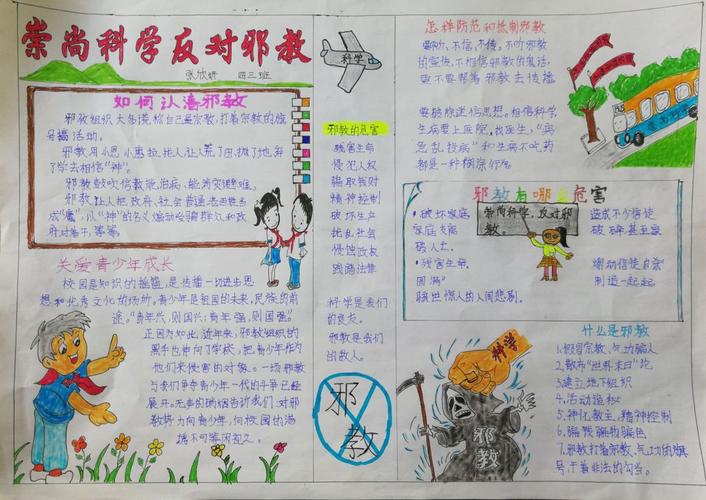 崇尚科学反对邪教
张欣妍 四三班
如何认清邪教
邪教组织大多谎称自己是宗教,打着宗教的旗
号搞活动。
邪教用小恩小惠拉拢人,让人荒了田,抛了地,弃
了学去相信"神"。
邪教鼓吹信教能治病、能消灾避难。
邪教让人把政府、社会普通
"魔",以"神"的名义煽动蒙骗群众和政
府对着干,等等。
关爱青少年成长
校园是知识的摇篮,是传播一切进步思
想和优秀文化的场所。青少年是祖国的未来、民族的前
途。"青年兴,则国兴;青年强,则国强"
正因为如此,近年来,邪教组织的
黑手也伸向了学校,把青少年作为
他们来侵害的对象。一场邪教
与我们争夺青少年一代的斗争已经
展开。无声的硝烟告诉我们:对邪
教将力向青少年、向校园的汤
携不可等闲视之。
科学
邪教的危害
残害生命
侵犯人权
骗取钱财
精神控制
破坏生产
扰乱社会
侵蚀政权
践踏法律
科学是我们
的良友。
邪教是我们
的敌人。
邪教
怎样防范和抵制邪教
要听、不信、不传。不听邪教
的宣传、不相信邪教的鬼话,
更不要帮着邪教去传播
要破除迷信思想。相信科学,
生病要上医院,找医生,"病
急乱投病"和生病不吃药
都是一种糊涂行为
邪教有哪些危害
·破坏家庭
家庭支离
破人亡。
·残害生命、
圆满"
骇世惊人的人间悲剧。
崇尚科学,反对邪
教。
造成不少信徒
破碎甚至家
煽动信徒自杀
制造一起起
科学
邪教
什么是邪教
1、假冒宗教、气功骗人
2、散布"世界末日"论
3、建立地下组织
4、活动造私
5、神化教主,精神控制
6、骗钱骗物骗色
7、邪教打着宗教、气功的旗
号,干着非法的勾当。